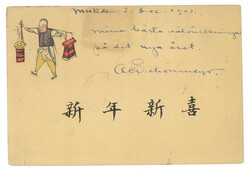 Mukden 2. Dec. 19
Mina bästa välönskningar
på det nya året.
新年新喜